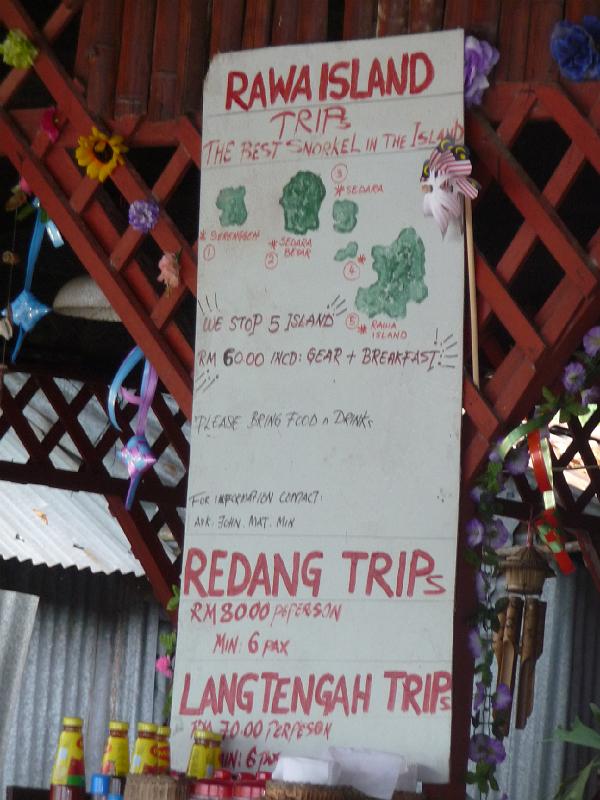 RAWA ISLAND
TRIPs
THE BEST SNORKEL IN THE ISLAND
3
* SEDARA
* SERENGGEH
1
* SEDARA
BESAR
2
4
5
* RAWA
ISLAND
WE STOP 5 ISLAND
RM 60.00 INCD: GEAR + BREAKFAST
PLEASE BRING FOOD n DRINKs
FOR INFORMATION CONTACT:
ASK: JOHN. MAT. MIN
REDANG TRIPs
RM 80.00 PEPERSON
MIN: 6 PAX
LANGTENGAH TRIPs
RM 70.00 PERPESON
MIN: 6 PAX